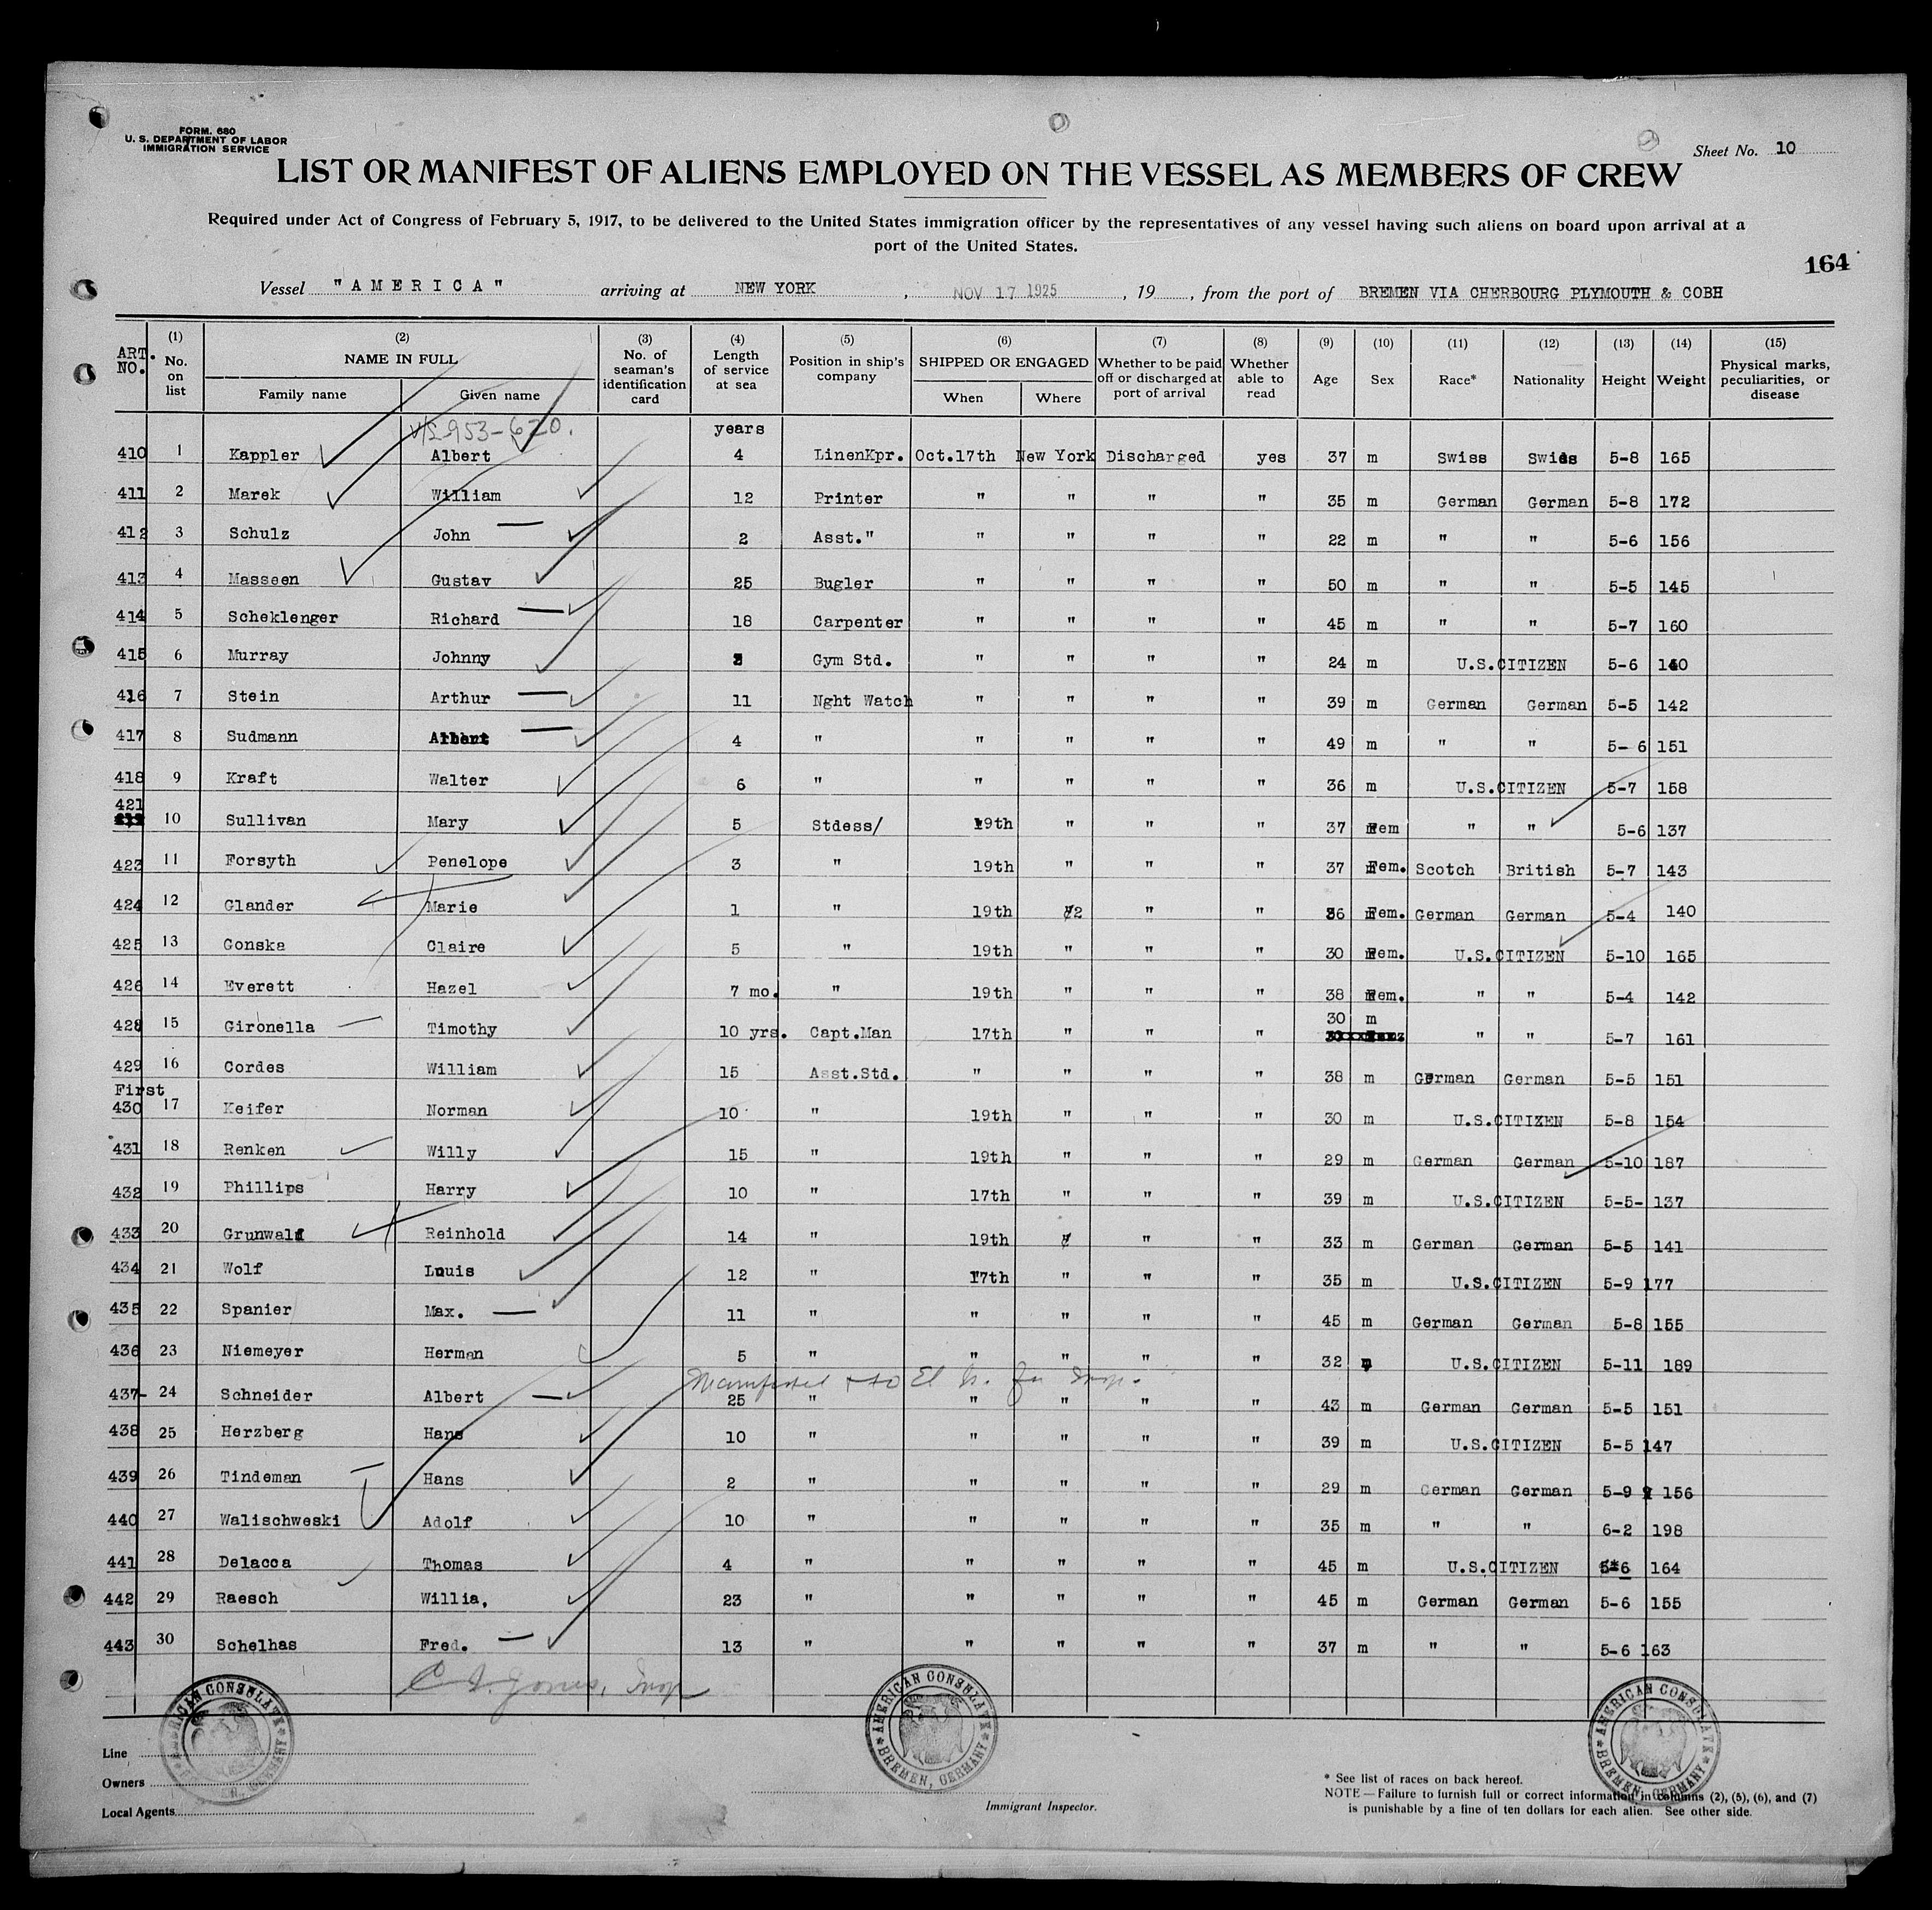 FORM. 680
U. S. DEPARTMENT OF LABOR
IMMIGRATION SERVICE
Sheet No. 10
LIST OR MANIFEST OF ALIENS EMPLOYED ON THE VESSEL AS MEMBERS OF CREW
Required under Act of Congress of February 5, 1917, to be delivered to the United States immigration officer by the representatives of any vessel having such aliens on board upon arrival at a
port of the United States.
164
Vessel "AMERICA" arriving at NEW YORK, NOV 17 1925, 19 , from the port of BREMEN VIA CHERBOURG PLYMOUTH & COBH
ART. NO. (1) No. on list (2) NAME IN FULL Family name Given name (3) No. of seaman's identification card (4) Length of service at sea (5) Position in ship's company (6) SHIPPED OR ENGAGED When Where (7) Whether to be paid off or discharged at port of arrival (8) Whether able to read (9) Age (10) Sex (11) Race* (12) Nationality (13) Height (14) Weight (15) Physical marks, peculiarities, or disease
953-620. years
410 1 Kappler Albert 4 LinenKpr. Oct.17th New York Discharged yes 37 m Swiss Swiss 5-8 165
411 2 Marek William 12 Printer " " " " 35 m German German 5-8 172
412 3 Schulz John 2 Asst." " " " " 22 m " " 5-6 156
413 4 Masseen Gustav 25 Bugler " " " " 50 m " " 5-5 145
414 5 Scheklenger Richard 18 Carpenter " " " " 45 m " " 5-7 160
415 6 Murray Johnny Gym Std. " " " " 24 m U.S.CITIZEN 5-6 140
416 7 Stein Arthur 11 Nght Watch " " " " 39 m German German 5-5 142
417 8 Sudmann Albert 4 " " " " " 49 m " " 5- 6 151
418 9 Kraft Walter 6 " " " " " 36 m U.S.CITIZEN 5-7 158
421 10 Sullivan Mary 5 Stdess/ 19th " " " 37 Fem " " 5-6 137
423 11 Forsyth Penelope 3 " 19th " " " 37 Fem. Scotch British 5-7 143
424 12 Glander Marie 1 " 19th " " 36 Fem. German German 5-4 140
425 13 Gonska Claire 5 " 19th " " " 30 Fem. U.S.CITIZEN 5-10 165
426 14 Everett Hazel 7 mo. " 19th " " " 38 Fem. " " 5-4 142
428 15 Gironella Timothy 10 yrs. Capt.Man 17th " " " 30 m " " 5-7 161
429 16 Cordes William 15 Asst.Std. " " " " 38 m German German 5-5 151
First
430 17 Keifer Norman 10 " 19th " " " 30 m U.S.CITIZEN 5-8 154
431 18 Renken Willy 15 " 19th " " " 29 m German German 5-10 187
432 19 Phillips Harry 10 " 17th " " " 39 m U.S.CITIZEN 5-5- 137
433 20 Grunwald Reinhold 14 " 19th " " " 33 m German German 5-5 141
434 21 Wolf Louis 12 " 17th " " " 35 m U.S.CITIZEN 5-9 177
435 22 Spanier Max. 11 " " " " " 45 m German German 5-8 155
436 23 Niemeyer Herman 5 " " " " " 32 m U.S.CITIZEN 5-11 189
437- 24 Schneider Albert 25 " " " " " 43 m German German 5-5 151
438 25 Herzberg Hans 10 " " " " " 39 m U.S.CITIZEN 5-5 147
439 26 Tindeman Hans 2 " " " " " 29 m German German 5-9 156
440 27 Walischweski Adolf 10 " " " " " 35 m " " 6-2 198
441 28 Delacca Thomas 4 " " " " " 45 m U.S.CITIZEN 5-6 164
442 29 Raesch Willia, 23 " " " " " 45 m German German 5-6 155
443 30 Schelhas Fred. 13 " " " " " 37 m " " 5-6 163
AMERICAN CONSULATE BREMEN, GERMANY
AMERICAN CONSULATE BREMEN, GERMANY
AMERICAN CONSULATE BREMEN, GERMANY
Line
Owners
Local Agents
Immigrant Inspector.
* See list of races on back hereof.
NOTE—Failure to furnish full or correct information in columns (2), (5), (6), and (7)
is punishable by a fine of ten dollars for each alien. See other side.